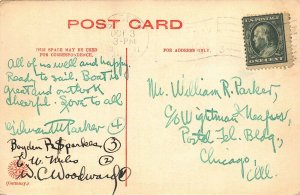 POST CARD
OCT 3
3-PM
THIS SPACE MAY BE USED
FOR CORRESPONDENCE.
FOR ADDRESS ONLY.
All of us well and happy.
Ready to sail. Boat is
great and outlook
cheerful. Love to all
Parker 4
Boyden Sparkes 3
E. W. 2
W. C. Woodward 1
(Germany.)
Mr. William R. Parker,
c/o Wightman
Postal Tel. Bldg.,
Chicago,
Ill.
U.S. POSTAGE
ONE CENT